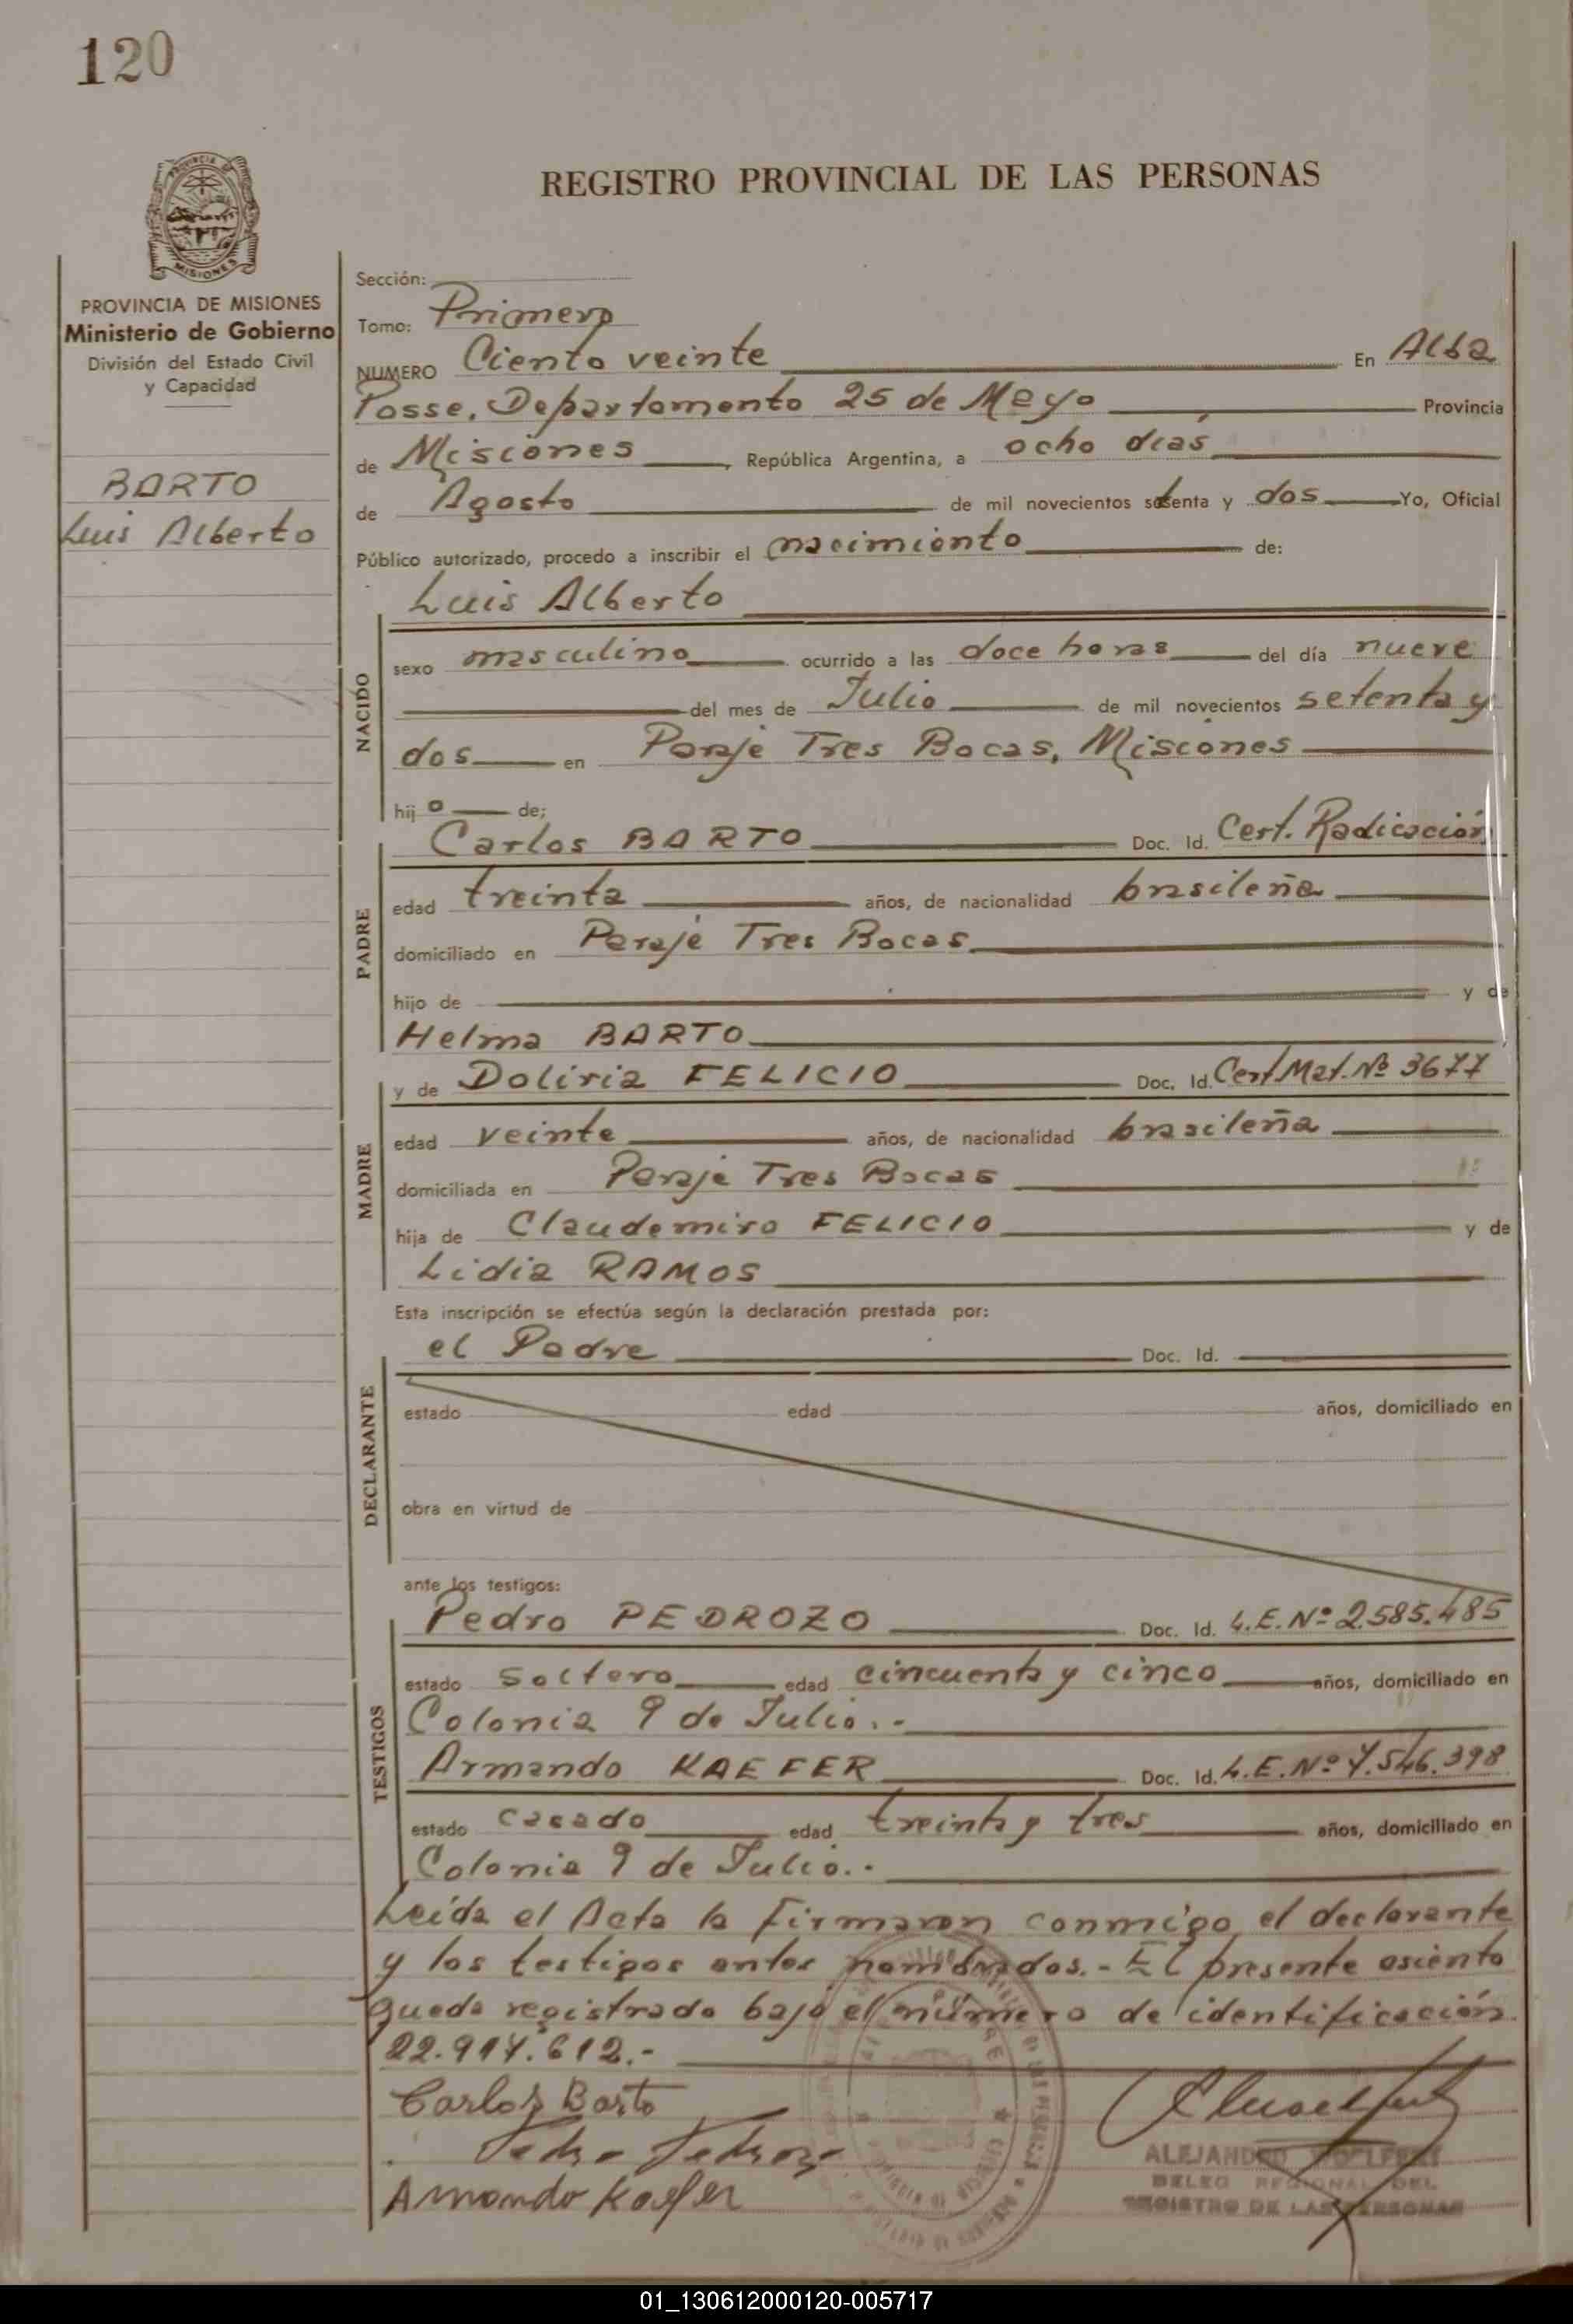 120
REGISTRO PROVINCIAL DE LAS PERSONAS
PROVINCIA DE MISIONES
Ministerio de Gobierno
División del Estado Civil
y Capacidad
BARTO
Luis Alberto
Sección:
Tomo: Primero
NUMERO Ciento veinte En Alba
Posse, Departamento 25 de Mayo Provincia
de Misiones, República Argentina, a ocho días
de Agosto de mil novecientos setenta y dos Yo, Oficial
Público autorizado, procedo a inscribir el nacimiento de:
Luis Alberto
NACIDO
sexo masculino ocurrido a las doce horas del día nueve
del mes de Julio de mil novecientos setenta y
dos en Paraje Tres Bocas, Misiones
hijo de;
Carlos BARTO Doc. Id. Cert. Radicación
PADRE
edad treinta años, de nacionalidad brasileña
domiciliado en Paraje Tres Bocas
hijo de y de
Helma BARTO
y de Doliria FELICIO Doc. Id. Cert Mat. Nº 3677
MADRE
edad veinte años, de nacionalidad brasileña
domiciliada en Paraje Tres Bocas
hija de Claudemiro FELICIO y de
Lidia RAMOS
Esta inscripción se efectúa según la declaración prestada por:
el Padre Doc. Id.
DECLARANTE
estado edad años, domiciliado en
obra en virtud de
ante los testigos:
Pedro PEDROZO Doc. Id. L.E. Nº 2.585.485
TESTIGOS
estado soltero edad cincuenta y cinco años, domiciliado en
Colonia 9 de Julio.-
Armando KAEFER Doc. Id. L.E. Nº 7.546.398
estado casado edad treinta y tres años, domiciliado en
Colonia 9 de Julio.-
Leída el Acta la firmaron conmigo el declarante
y los testigos antes nombrados.- El presente asiento
queda registrado bajo el número de identificación
22.917.612.-
Carlos Barto
Pedro Pedrozo
Armando Kaefer
ALEJANDRO
DELEG REGIONAL DEL
REGISTRO DE LAS PERSONAS
01_130612000120-005717